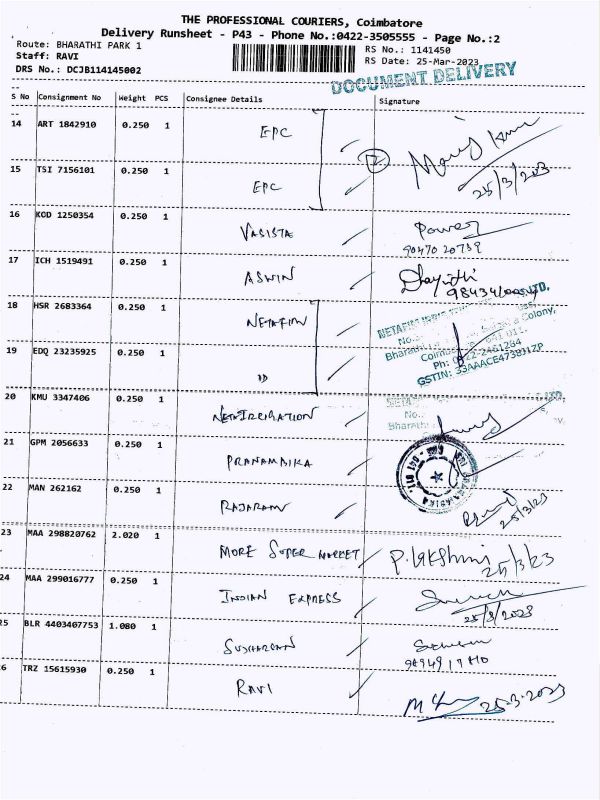 THE PROFESSIONAL COURIERS, Coimbatore
Delivery Runsheet - P43 - Phone No.:0422-3505555 - Page No.:2
Route: BHARATHI PARK 1 RS No.: 1141450
Staff: RAVI RS Date: 25-Mar-2023
DRS No.: DCJB114145002
DOCUMENT DELIVERY
S No Consignment No Weight PCS Consignee Details Signature
14 ART 1842910 0.250 1 EPC
25/3/2023
15 TSI 7156101 0.250 1 EPC
16 KOD 1250354 0.250 1 VASISTA
90470 20739
17 ICH 1519491 0.250 1 ASWIN
18 HSR 2683364 0.250 1 NETAFIM
LTD.
Colony,
No.
Bharathi
Coimbatore 641 011.
Ph: 0422-2461284
GSTIN: 33AAACE4738J1ZP
19 EDQ 23235925 0.250 1 ID
20 KMU 3347406 0.250 1 NETAIRRIGATION
LTD.
No.
Bharathi
21 GPM 2056633 0.250 1 PRANAMBIKA
22 MAN 262162 0.250 1 RAJARAM
25/3/23
23 MAA 298820762 2.020 1 MORE SUPER MARKET P. Lakshmi
25/3/23
24 MAA 299016777 0.250 1 INDIAN EXPRESS
25/3/2023
25 BLR 4403407753 1.080 1
26 TRZ 15615930 0.250 1 RAVI
25-3-2023